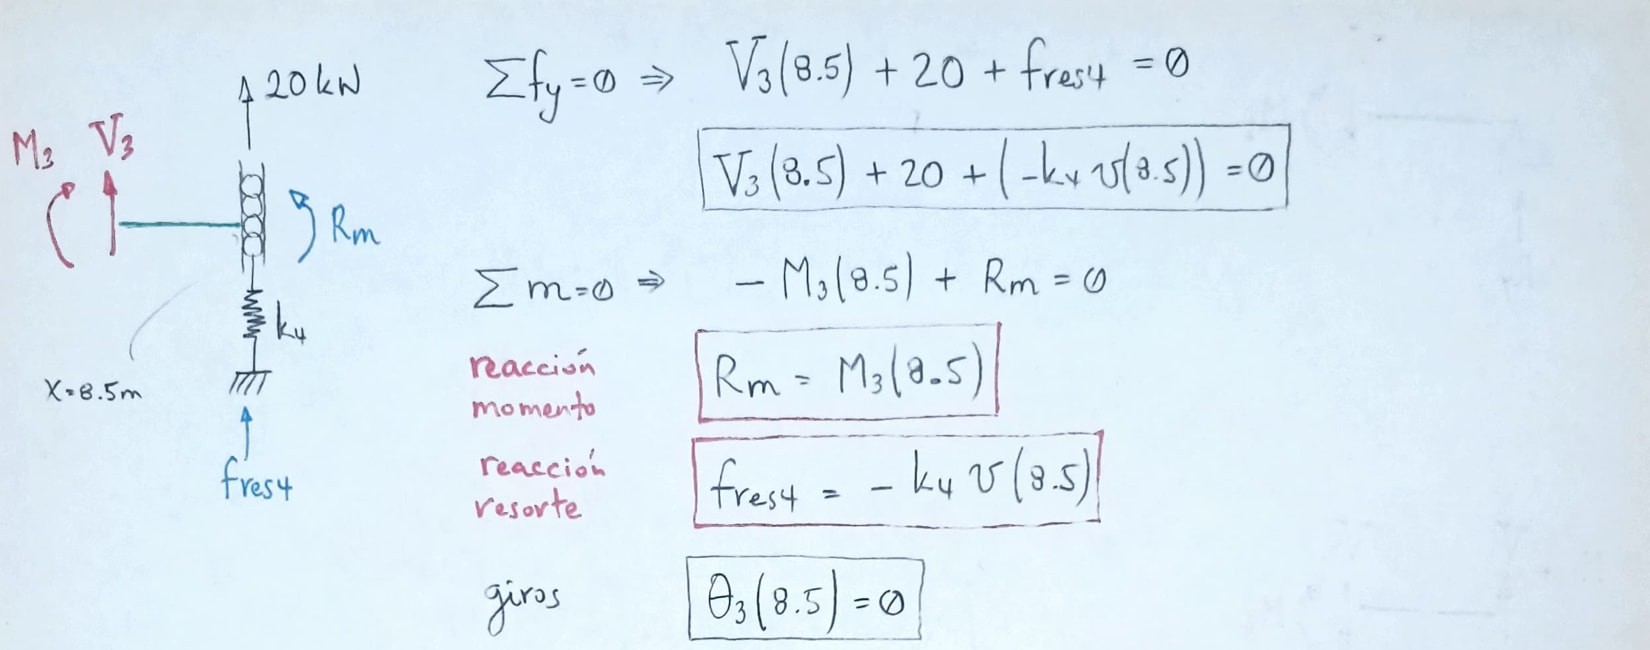 20 kN
M₃ V₃
Rm
k₄
x=8.5m
fres4
Σfy=0 ⇒ V₃(8.5) + 20 + fres4 = 0
V₃(8.5) + 20 + (-k₄ v(8.5)) = 0
Σm=0 ⇒ - M₃(8.5) + Rm = 0
reacción
momento
Rm = M₃(8.5)
reacción
resorte
fres4 = - k₄ v(8.5)
giros
θ₃(8.5) = 0